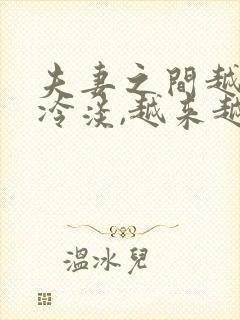 夫妻之間越
冷淡,越来越
溫冰兒